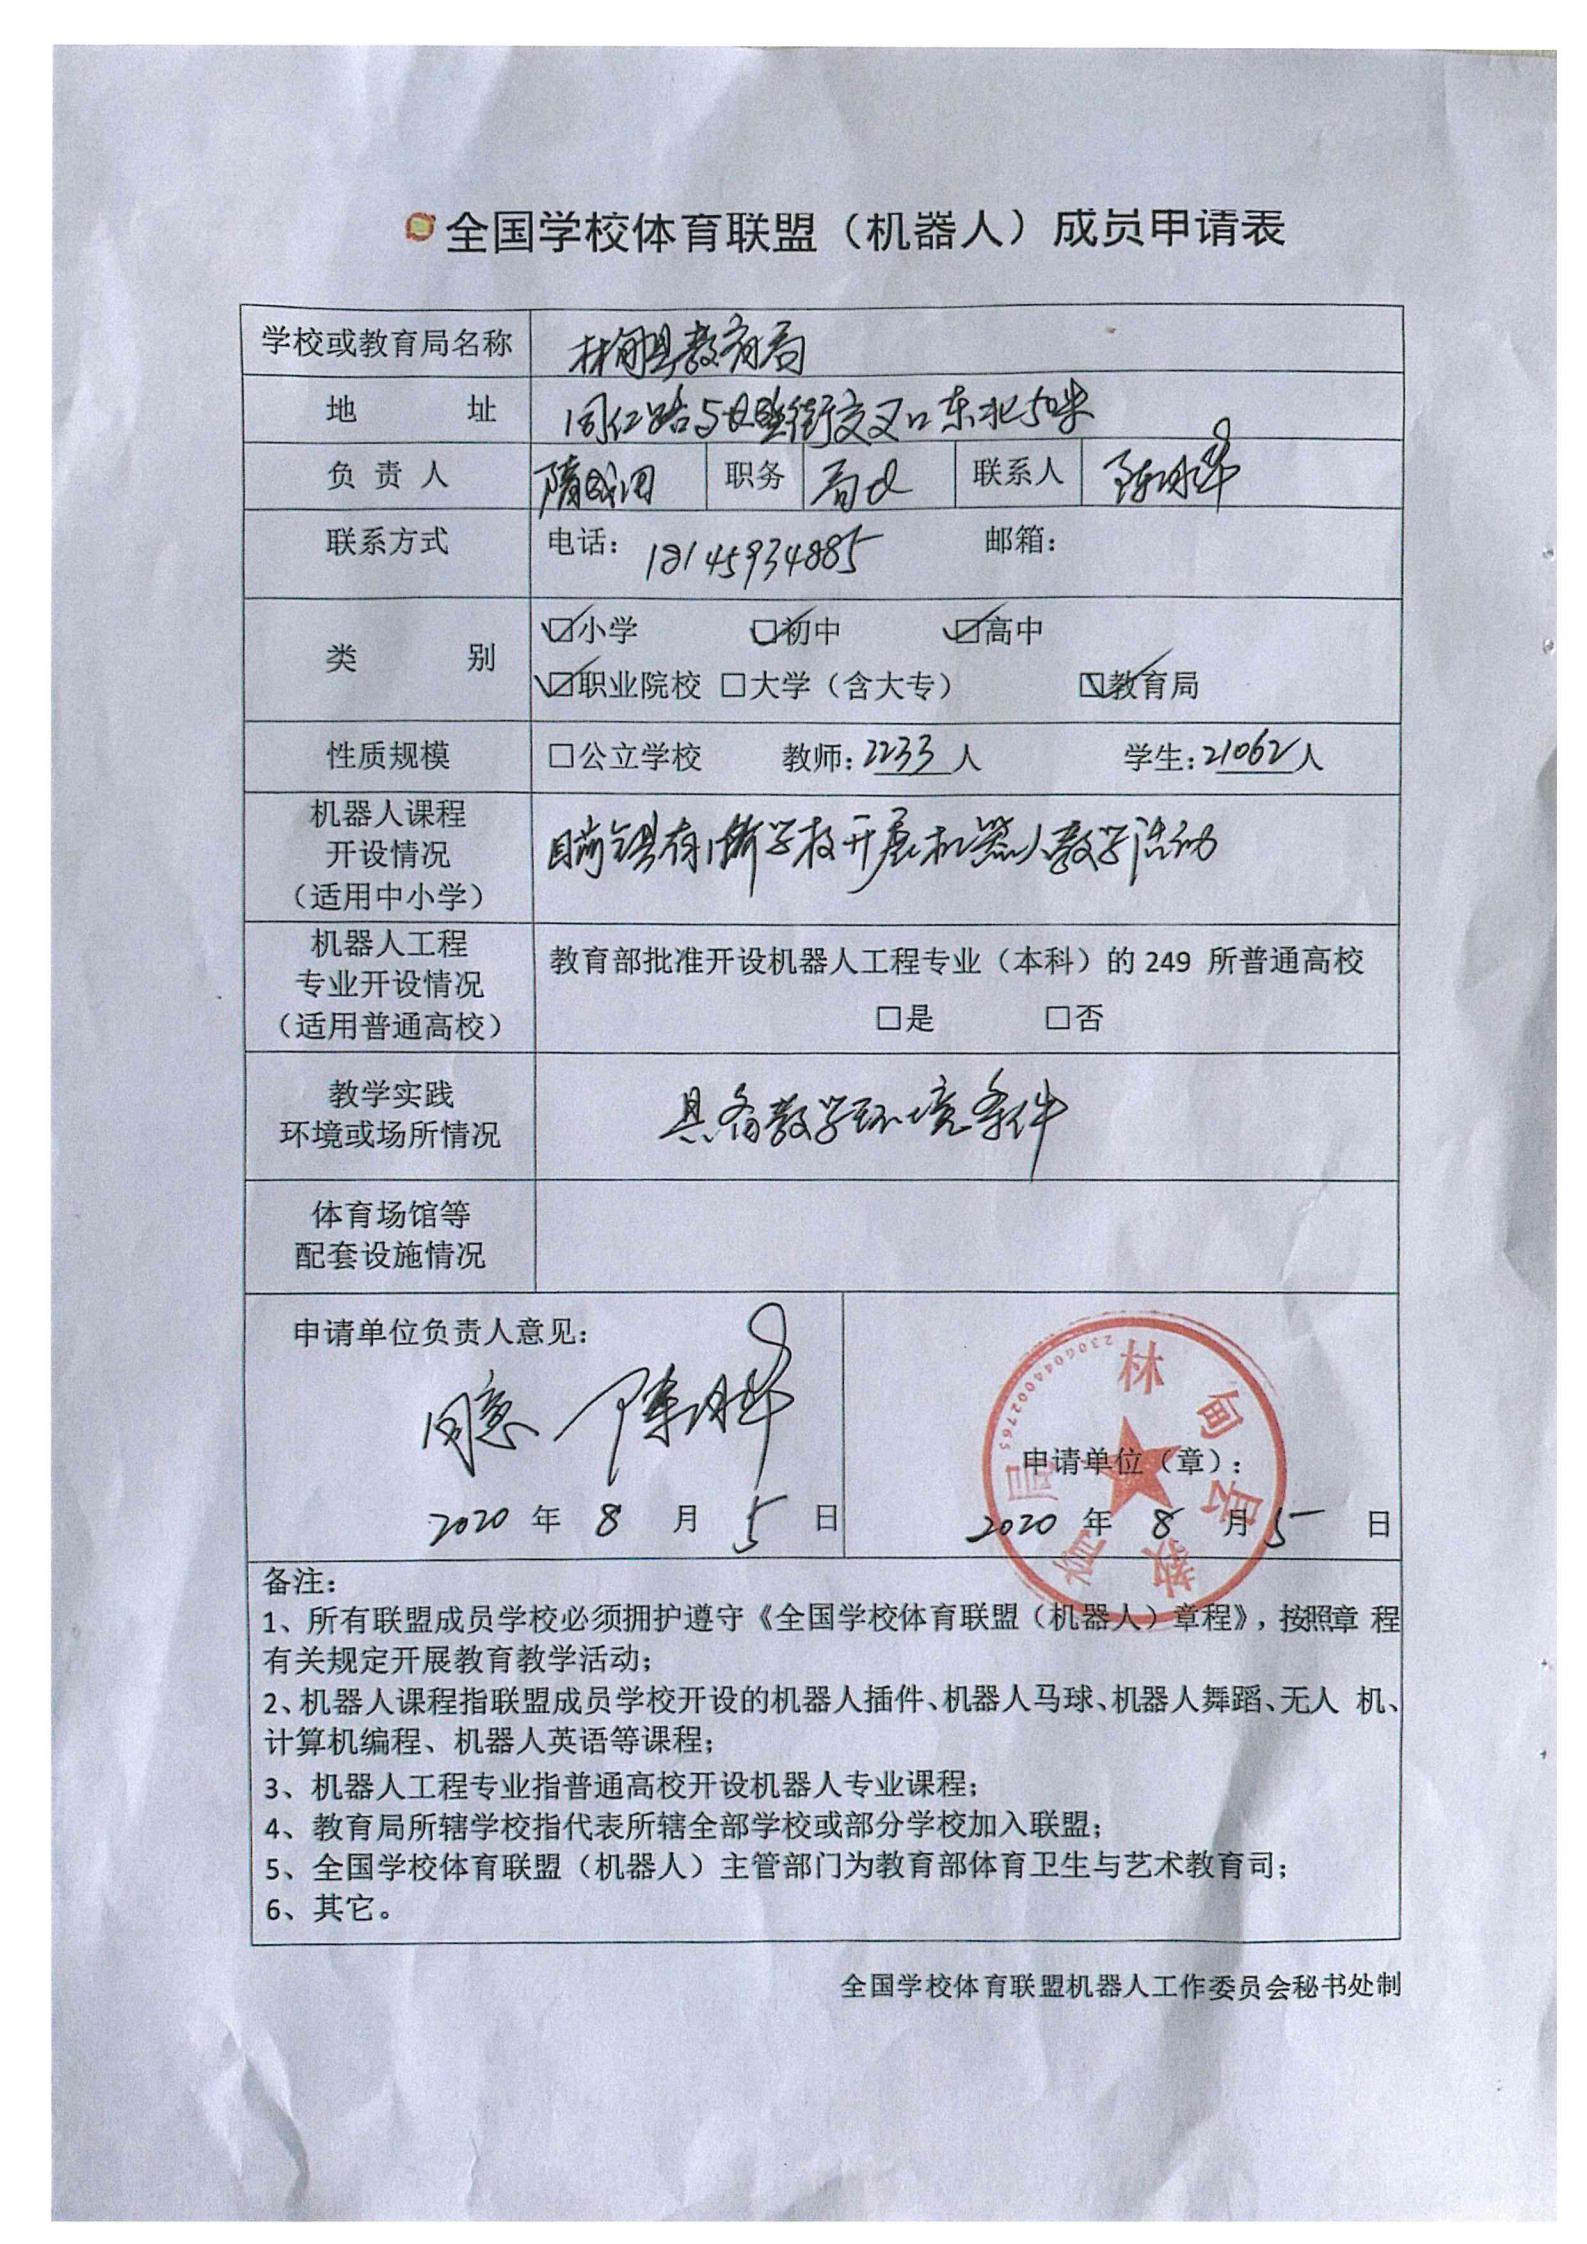 全国学校体育联盟（机器人）成员申请表
学校或教育局名称 林甸县教育局
地 址 同仁路与 街交叉口东北50米
负 责 人 隋 职务 局长 联系人 陈
联系方式 电话：18145934885 邮箱：
类 别 ☑小学 ☑初中 ☑高中
☑职业院校 □大学（含大专） ☑教育局
性质规模 □公立学校 教师：2233人 学生：21062人
机器人课程
开设情况
（适用中小学）
目前 县有 所学校开展机器人教学活动
机器人工程
专业开设情况
（适用普通高校）
教育部批准开设机器人工程专业（本科）的 249 所普通高校
□是 □否
教学实践
环境或场所情况
具备教学环境条件
体育场馆等
配套设施情况
申请单位负责人意见：
同意 陈
2020 年 8 月 5 日
林甸县教育局
2306040002765
申请单位（章）：
2020 年 8 月 5 日
备注：
1、所有联盟成员学校必须拥护遵守《全国学校体育联盟（机器人）章程》，按照章 程
有关规定开展教育教学活动；
2、机器人课程指联盟成员学校开设的机器人插件、机器人马球、机器人舞蹈、无人 机、
计算机编程、机器人英语等课程；
3、机器人工程专业指普通高校开设机器人专业课程；
4、教育局所辖学校指代表所辖全部学校或部分学校加入联盟；
5、全国学校体育联盟（机器人）主管部门为教育部体育卫生与艺术教育司；
6、其它。
全国学校体育联盟机器人工作委员会秘书处制